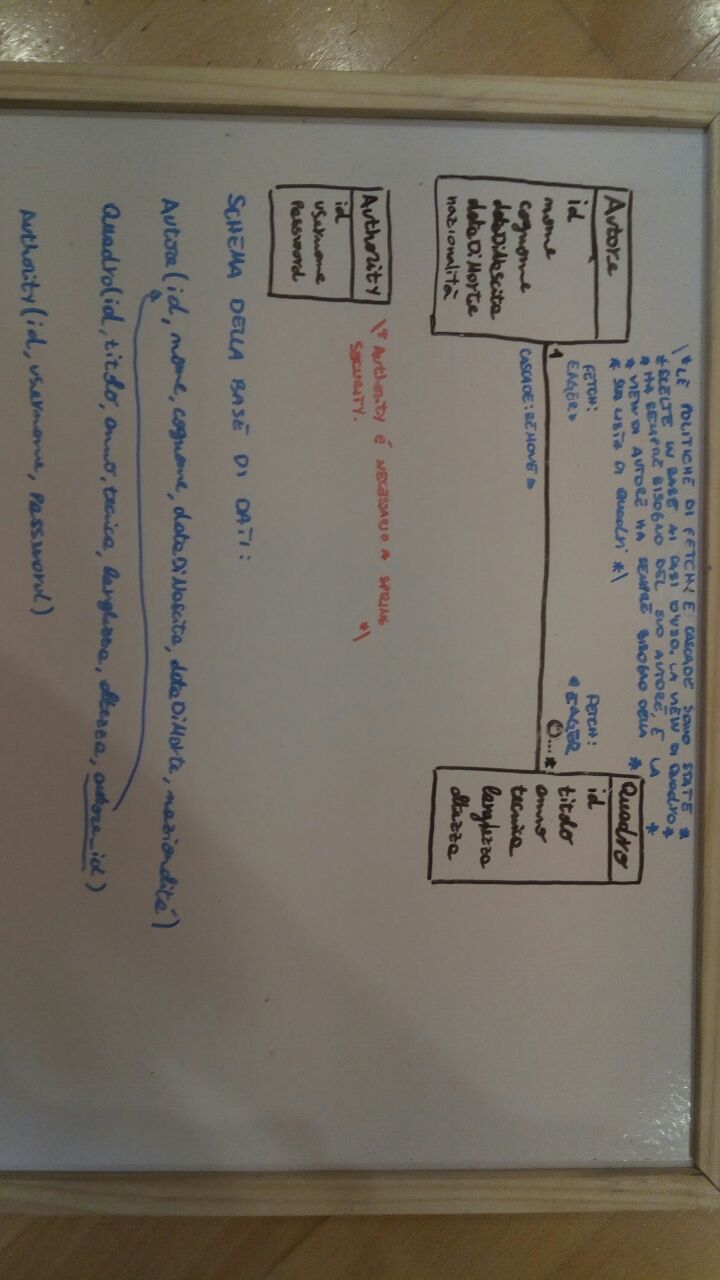 \* LE POLITICHE DI FETCH E CASCADE SONO STATE *
* SCELTE IN BASE AI CASI D'USO. LA VIEW DI Quadro *
* HA SEMPRE BISOGNO DEL SUO AUTORE, E LA *
* VIEW DI AUTORE HA SEMPRE BISOGNO DELLA *
* SUA LISTA DI Quadri *\
Autore
id
nome
cognome
dataDiNascita
dataDiMorte
nazionalità
1
FETCH:
EAGER
CASCADE: REMOVE
FETCH:
EAGER
0...*
Quadro
id
titolo
anno
tecnica
larghezza
altezza
Authority
id
username
Password
\* Authority É NECESSARIO A SPRING
SECURITY. *\
SCHEMA DELLA BASE DI DATI:
Autore(id, nome, cognome, dataDiNascita, dataDiMorte, nazionalità)
Quadro(id, titolo, anno, tecnica, larghezza, altezza, autore_id)
Authority(id, username, Password)